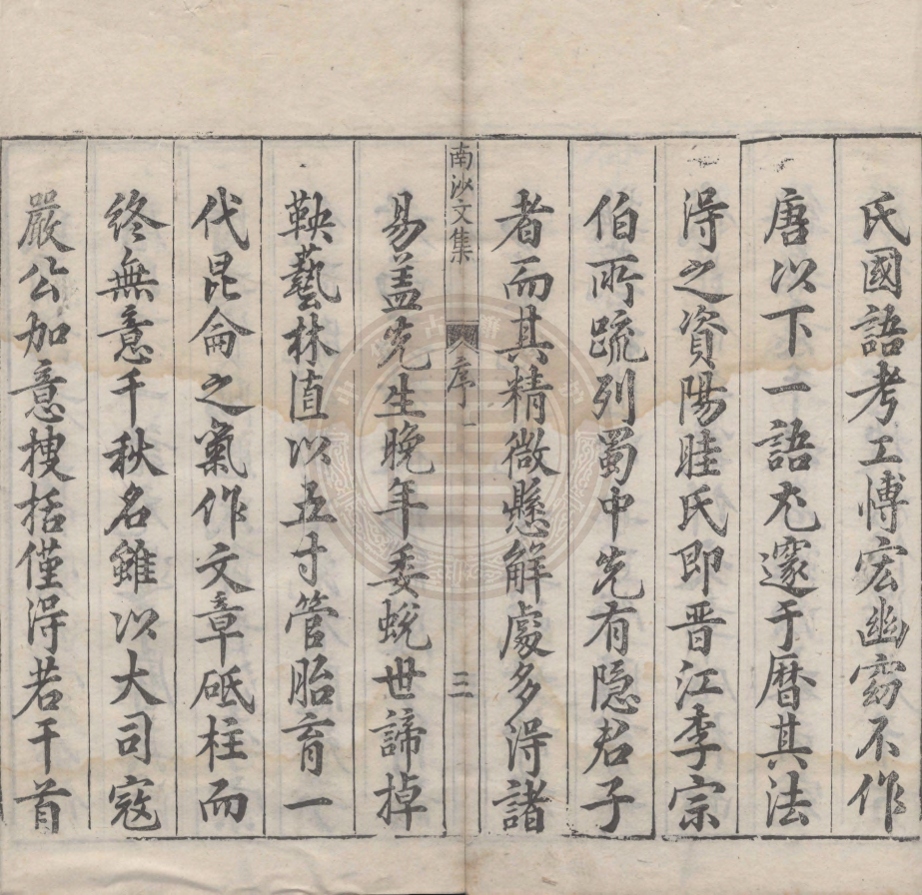 氏國語考工博宏幽窈不作
唐以下一語尤邃于曆其法
淂之資陽眭氏即晋江李宗
伯所䟽列蜀中先有隐君子
者而其精微懸解處多淂諸
南沙文集 序 三
易盖先生晚年委蛻世諦掉
鞅藝林直以五寸管胎育一
代昆侖之氣作文章砥柱而
終無意千秋名雖以大司寇
嚴公加意搜括僅淂若干首